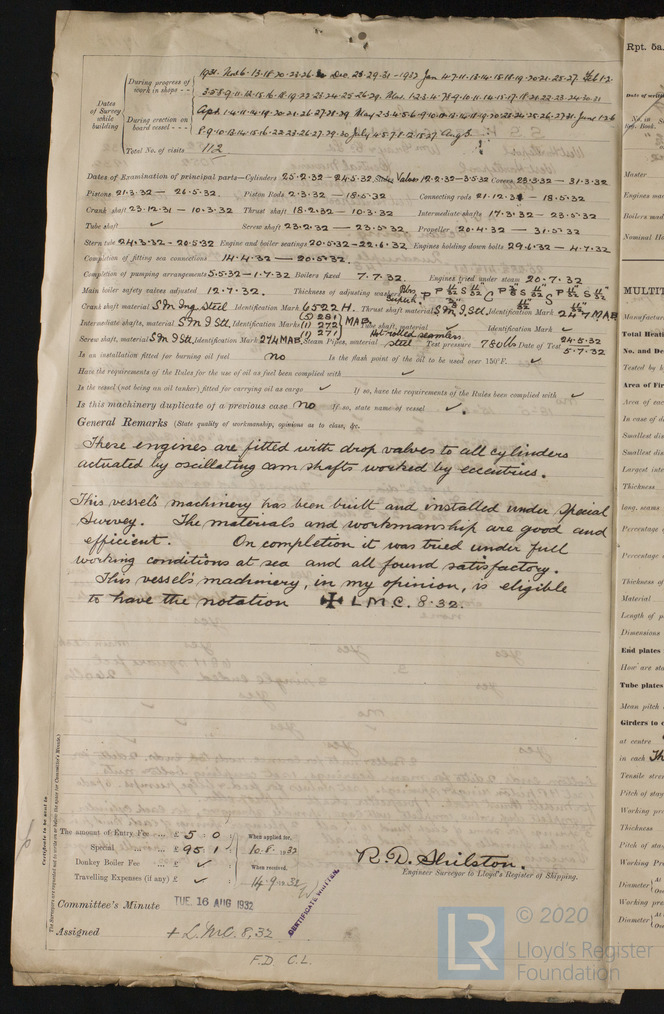 Dates of Survey while building
During progress of work in shops - -
1931. Nov 6.13.18.20.23.26. Dec 28.29.31 - 1932 Jan 4.7.11.13.14.15.18.19.20.21.25.27. Feb 1.2.
3.5.8.9.11.12.15.16.18.19.22.23.24.25.26.29. Mar. 1.2.3.4.7.8.9.10.11.14.15.17.18.21.22.23.24.30.31
During erection on board vessel - - -
Total No. of visits 112
Dates of Examination of principal parts—Cylinders 25.2.32 - 24.5.32 Valves 12.2.32-3.5.32 Covers 23.3.32 - 31.3.32
Pistons 21.3.32 - 26.5.32. Piston Rods 2.3.32 - 18.5.32 Connecting rods 21.12.31 - 18.5.32
Crank shaft 23.12.31 - 10.3.32 Thrust shaft 18.2.32 - 10.3.32 Intermediate shafts 17.3.32 - 23.5.32
Tube shaft ✓ Screw shaft 23.2.32 - 23.5.32 Propeller 20.4.32 - 31.5.32
Stern tube 24.3.32 - 20.5.32 Engine and boiler seatings 20.5.32-22.6.32 Engines holding down bolts 29.6.32 - 4.7.32
Completion of fitting sea connections 14.4.32 - 20.5.32.
Completion of pumping arrangements 5.5.32-1.7.32 Boilers fixed 7.7.32. Engines tried under steam 20.7.32
Main boiler safety valves adjusted 12.7.32. Thickness of adjusting washers
Crank shaft material S.M. Ing. Steel Identification Mark 6522 H. Thrust shaft material S.M.I.Stl. Identification Mark 247 MAB
Intermediate shafts, material S.M.I.Stl. Identification Marks (5) 281 (1) 272 (1) 271 MAB Tube shaft, material ✓ Identification Mark ✓
Screw shaft, material S.M.I.Stl. Identification Mark 274 MAB Steam Pipes, material Hot rolled seamless steel Test pressure 780 lbs Date of Test 24.5.32 5.7.32
Is an installation fitted for burning oil fuel no Is the flash point of the oil to be used over 150°F. ✓
Have the requirements of the Rules for the use of oil as fuel been complied with ✓
Is the vessel (not being an oil tanker) fitted for carrying oil as cargo ✓ If so, have the requirements of the Rules been complied with ✓
Is this machinery duplicate of a previous case no If so, state name of vessel ✓
General Remarks (State quality of workmanship, opinions as to class, &c.
These engines are fitted with drop valves to all cylinders
actuated by oscillating cam shafts worked by eccentrics.
This vessel's machinery has been built and installed under Special
Survey. The materials and workmanship are good and
efficient. On completion it was tried under full
working conditions at sea and all found satisfactory.
This vessel's machinery, in my opinion, is eligible
to have the notation ✠ L.M.C. 8.32.
Certificate to be sent to
The amount of Entry Fee ... £ 5 : 0 : When applied for,
Special ... £ 95 : 1 : 10.8.1932
Donkey Boiler Fee ... £ ✓ When received,
Travelling Expenses (if any) £ ✓ 14.9.1932
R.D. Shilston.
Engineer Surveyor to Lloyd's Register of Shipping.
CERTIFICATE WRITTEN
Committee's Minute TUE. 16 AUG 1932
Assigned + L.M.C. 8,32
F.D. C.L.
Rpt. 5a.
Master
Engines ma
Boilers mad
Nominal Ho
MULTIT
Manufactur
Total Heatin
No. and De
Tested by h
Area of Fir
Area of eac
In case of d
Smallest dis
Smallest dia
Largest inte
Thickness
long. seams
Percentage o
Percentage o
Thickness of
Material
Length of p
Dimensions
End plates
How are sta
Tube plates
Mean pitch
Girders to c
at centre
in each Th
Tensile stren
Pitch of stay
Working pre
Thickness
Pitch of stay
Working Pr
Diameter
Working pre
Diameter
© 2020
LR
Lloyd's Register
Foundation